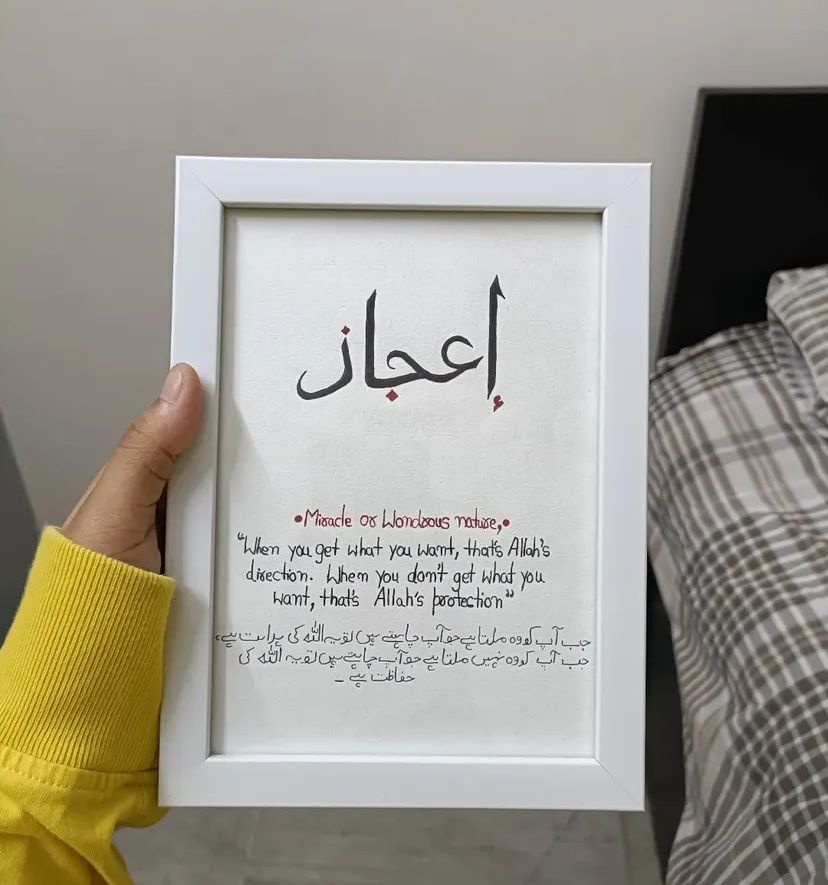 إعجاز
•Miracle or Wondrous nature,•
“When you get what you want, that's Allah's
direction. When you don't get what you
want, that's Allah's protection”
جب آپ کو وہ ملتا ہے جو آپ چاہتے ہیں تو یہ اللہ کی ہدایت ہے،
جب آپ کو وہ نہیں ملتا ہے جو آپ چاہتے ہیں تو یہ اللہ کی
حفاظت ہے ۔